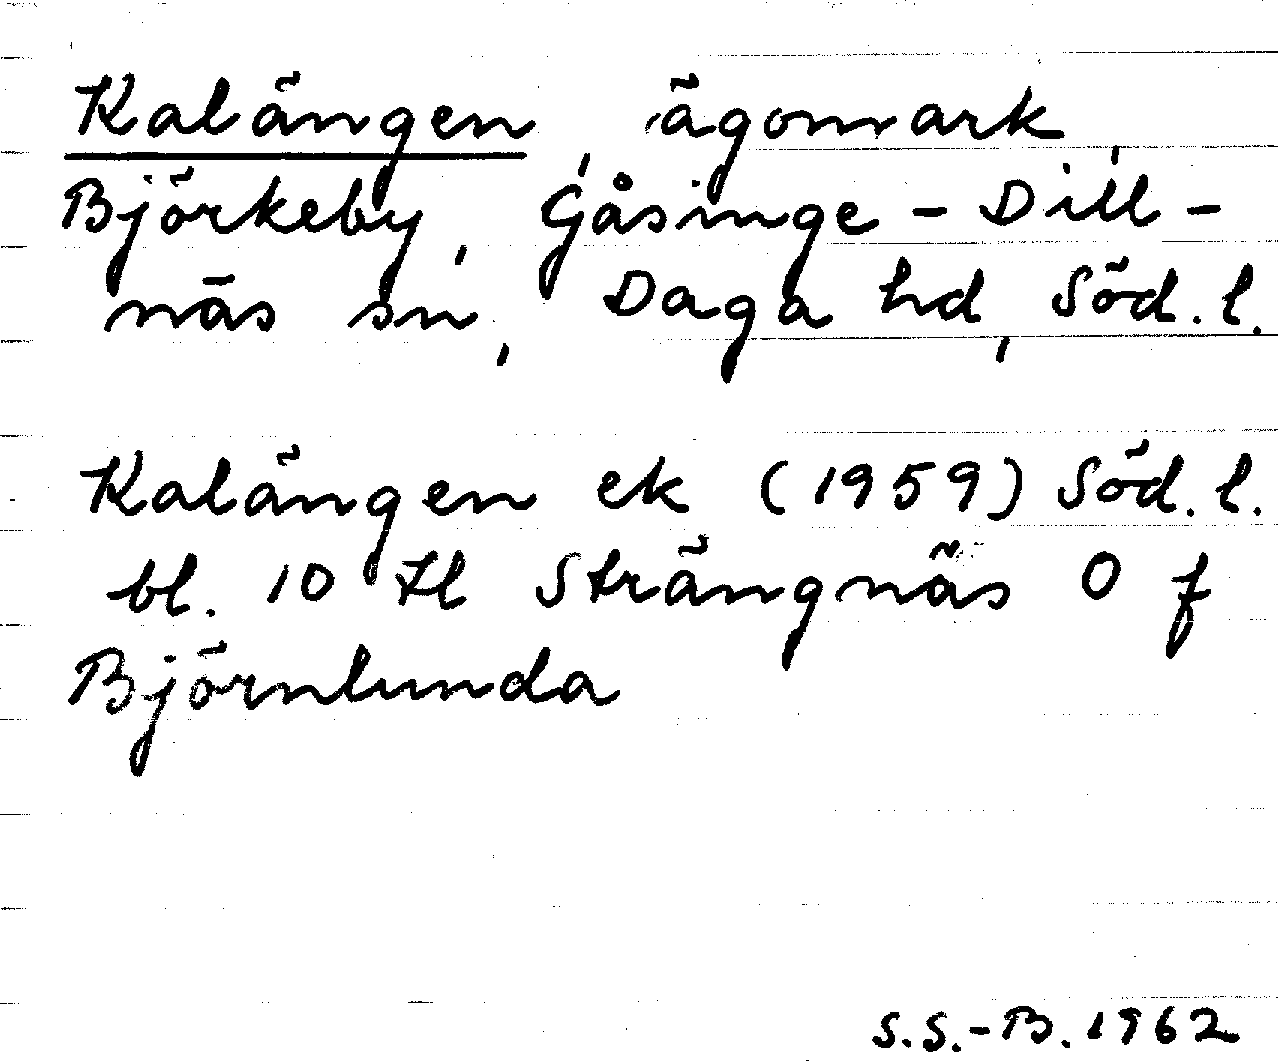 Kalängen, ägomark,
Björkeby, Gåsinge-Dill-
näs sn, Daga hd, Söd. l.
Kalängen ek (1959) Söd. l.
bl. 10 tl Strängnäs O f
Björnlunda
S.S.-B. 1962